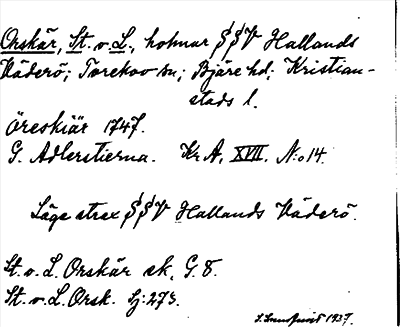 Orskär, St. o. L., holmar SSV Hallands
Väderö; Torekov sn; Bjäre hd; Kristian-
stads l.
Öreskiär 1747.
G. Adlerstierna. Kr A, XVII. N:o 14.
Läge strax SSV Hallands Väderö.
St. o. L. Orskär ek, G. 8.
St. o. L. Orsk. Sj: 273.
1937.